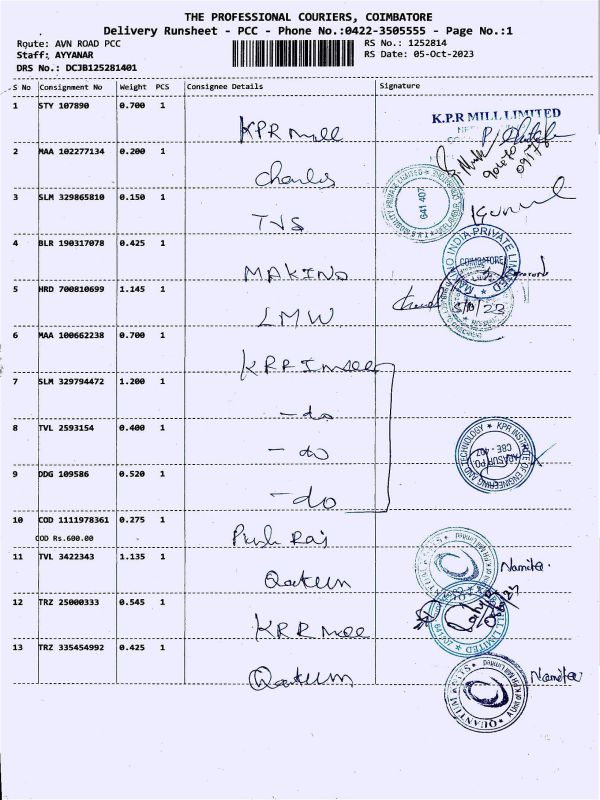 THE PROFESSIONAL COURIERS, COIMBATORE
Delivery Runsheet - PCC - Phone No.:0422-3505555 - Page No.:1
Route: AVN ROAD PCC RS No.: 1252814
Staff: AYYANAR RS Date: 05-Oct-2023
DRS No.: DCJB125281401
S No Consignment No Weight PCS Consignee Details Signature
1 STY 107890 0.700 1 KPR mill K.P.R MILL LIMITED
2 MAA 102277134 0.200 1 Charles
3 SLM 329865810 0.150 1 TVS 641 407
4 BLR 190317078 0.425 1 MAKINO MAKINO INDIA PRIVATE LIMITED COIMBATORE
5 HRD 700810699 1.145 1 LMW 5/10/23
6 MAA 100662238 0.700 1
7 SLM 329794472 1.200 1 - do
8 TVL 2593154 0.400 1 - do KPR INSTITUTE OF ENGINEERING AND TECHNOLOGY
9 DDG 109586 0.520 1 - do
10 COD 1111978361 0.275 1
COD Rs.600.00
11 TVL 3422343 1.135 1 QUANTUM Namita.
12 TRZ 25000333 0.545 1
13 TRZ 335454992 0.425 1 QUANTUM Namita